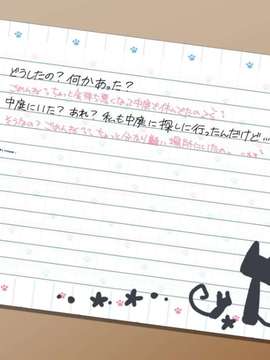 どうしたの？何かあった？
ごめんね。ちょっと気持ち悪くなって中庭で休んでたの
中庭にいた？あれ？私も中庭に探しに行ったんだけど…
そうなの？ごめんなさい、ちょっと分かり難い場所にいたの